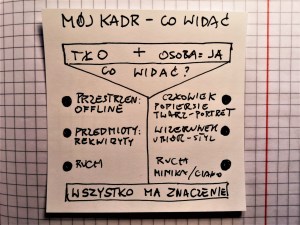 MÓJ KADR – CO WIDAĆ
TŁO + OSOBA = JA
CO WIDAĆ?
PRZESTRZEŃ:
OFFLINE
PRZEDMIOTY:
REKWIZYTY
RUCH
CZŁOWIEK
POPIERSIE
TWARZ-PORTRET
WIZERUNEK
UBIÓR-STYL
RUCH
MIMIKA/CIAŁO
WSZYSTKO MA ZNACZENIE